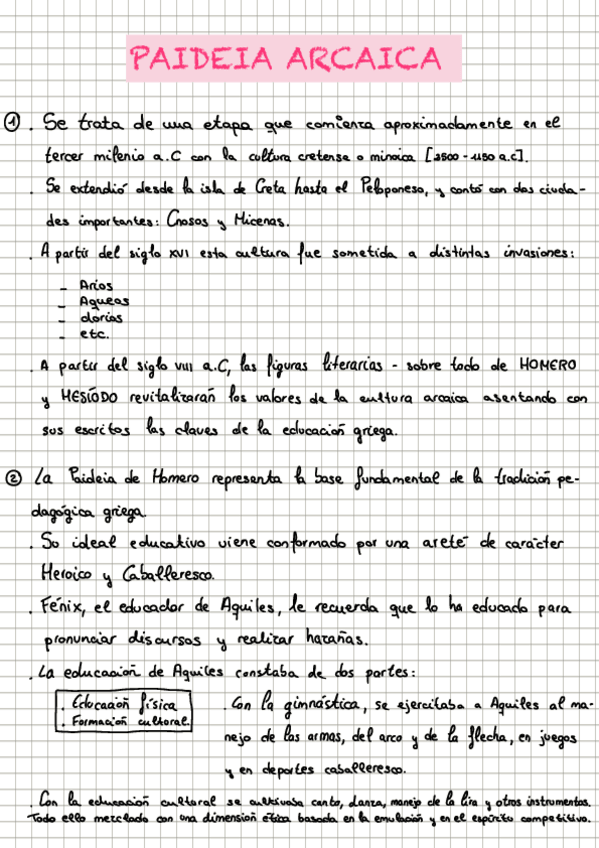 PAIDEIA ARCAICA
① . Se trata de una etapa que comienza aproximadamente en el
tercer milenio a.C con la cultura cretense o minoica [2500 - 1150 a.c].
. Se extendió desde la isla de Creta hasta el Peloponeso, y contó con dos ciuda-
des importantes: Cnosos y Micenas.
. A partir del siglo XVI esta cultura fue sometida a distintas invasiones:
- Arios
- Aqueos
- dorios
- etc.
. A partir del siglo VIII a.C, las figuras literarias - sobre todo de HOMERO
y HESÍODO revitalizarán los valores de la cultura arcaica asentando con
sus escritos las claves de la educación griega.
② La Paideia de Homero representa la base fundamental de la tradición pe-
dagógica griega.
. Su ideal educativo viene conformado por una areté de carácter
Heroico y Caballeresco.
. Fénix, el educador de Aquiles, le recuerda que lo ha educado para
pronunciar discursos y realizar hazañas.
. La educación de Aquiles constaba de dos partes:
. Educación física
. Formación cultoral.
. Con la gimnástica, se ejercitaba a Aquiles al ma-
nejo de las armas, del arco y de la flecha, en juegos
y en deportes caballeresco.
. Con la educación cultoral se cultivaba canto, danza, manejo de la lira y otros instrumentos.
Todo ello mezclado con una dimensión ética basada en la emulación y en el espíritu competitivo.